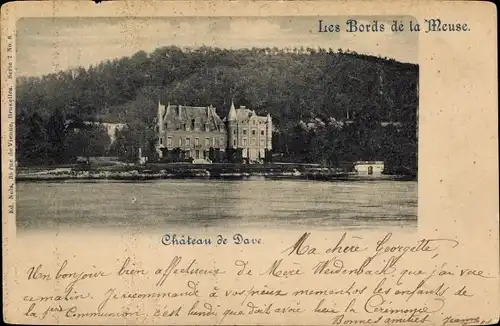 Les Bords de la Meuse.
Ed. Nels, Rue de Vienne, Bruxelles. Serie 7 No. 8
Château de Dave
Ma chère Georgette
Un bonjour bien affectueux de Mère Weidenbach que j'ai vue
ce matin. Je recommande à vos pieux mementos les enfants de
la 1re Communion; c'est lundi que doit avoir lieu la Cérémonie.
Bonnes amitiés